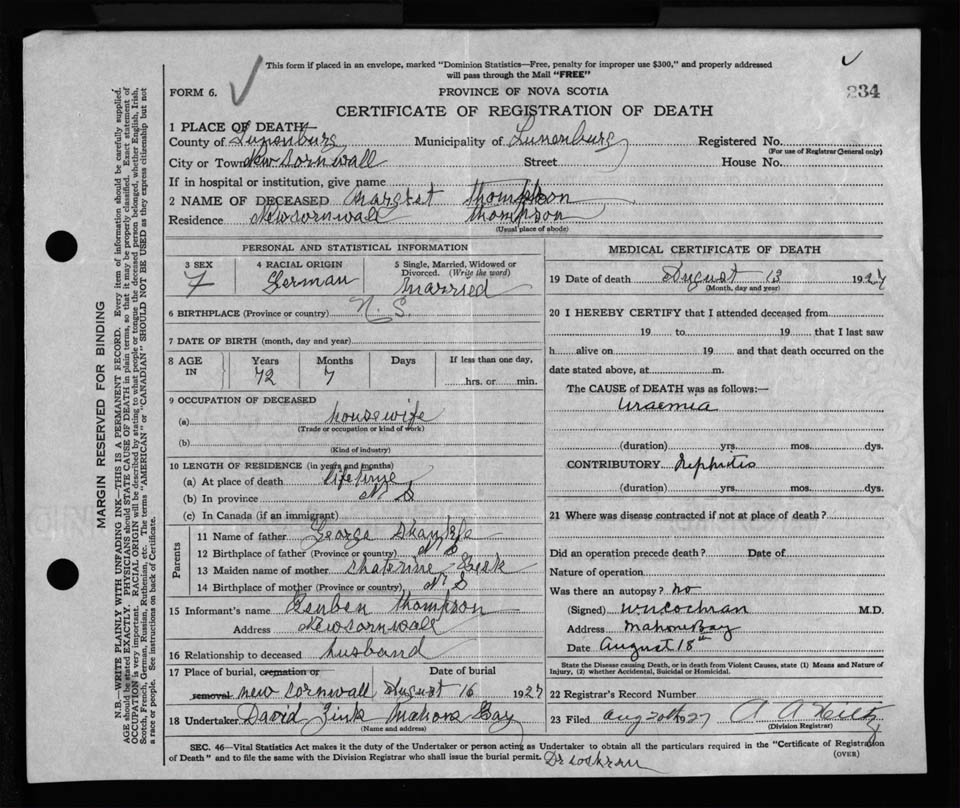 This form if placed in an envelope, marked "Dominion Statistics—Free, penalty for improper use $300," and properly addressed
will pass through the Mail "FREE"
FORM 6.
PROVINCE OF NOVA SCOTIA
234
CERTIFICATE OF REGISTRATION OF DEATH
1 PLACE OF DEATH
County of Lunenburg Municipality of Lunenburg Registered No.
(For use of Registrar General only)
City or Town New Cornwall Street House No.
If in hospital or institution, give name
2 NAME OF DECEASED Margret Thompson
Residence New Cornwall Thompson
(Usual place of abode)
PERSONAL AND STATISTICAL INFORMATION
3 SEX 4 RACIAL ORIGIN 5 Single, Married, Widowed or
Divorced. (Write the word)
F German Married
6 BIRTHPLACE (Province or country) N. S.
7 DATE OF BIRTH (month, day and year)
8 AGE IN Years Months Days If less than one day,
72 7 hrs. or min.
9 OCCUPATION OF DECEASED
(a) housewife
(Trade or occupation or kind of work)
(b)
(Kind of industry)
10 LENGTH OF RESIDENCE (in years and months)
(a) At place of death lifetime
(b) In province N S
(c) In Canada (if an immigrant)
Parents
11 Name of father George
12 Birthplace of father (Province or country) N S
13 Maiden name of mother Chaterine
14 Birthplace of mother (Province or country) N S
15 Informant's name Reuben Thompson
Address New Cornwall
16 Relationship to deceased husband
17 Place of burial, cremation or Date of burial
removal New Cornwall August 16 1927
18 Undertaker David Zink Mahone Bay
(Name and address)
MEDICAL CERTIFICATE OF DEATH
19 Date of death August 13 1927
(Month, day and year)
20 I HEREBY CERTIFY that I attended deceased from
19 to 19 that I last saw
h alive on 19 and that death occurred on the
date stated above, at m.
The CAUSE of DEATH was as follows:—
Uraemia
(duration) yrs. mos. dys.
CONTRIBUTORY Nephritis
(duration) yrs. mos. dys.
21 Where was disease contracted if not at place of death?
Did an operation precede death? Date of
Nature of operation
Was there an autopsy? no
(Signed) W N Cochran M.D.
Address Mahone Bay
Date August 18th
State the Disease causing Death, or in death from Violent Causes, state (1) Means and Nature of
Injury, (2) whether Accidental, Suicidal or Homicidal.
22 Registrar's Record Number
23 Filed Aug 20th 1927 A A Hiltz
(Division Registrar)
SEC. 46—Vital Statistics Act makes it the duty of the Undertaker or person acting as Undertaker to obtain all the particulars required in the "Certificate of Registration
of Death" and to file the same with the Division Registrar who shall issue the burial permit. Dr Cochran (OVER)
MARGIN RESERVED FOR BINDING
N.B.—WRITE PLAINLY WITH UNFADING INK—THIS IS A PERMANENT RECORD. Every item of information should be carefully supplied.
AGE should be stated EXACTLY. PHYSICIANS should STATE CAUSE OF DEATH in plain terms, so that it may be properly classified. Exact statement of
OCCUPATION is very important. RACIAL ORIGIN will be described by stating to what people or tongue the deceased person belonged, whether English, Irish,
Scotch, French, German, Russian, Ruthenian, etc. The terms "AMERICAN" or "CANADIAN" SHOULD NOT BE USED as they express citizenship but not
a race or people. See instructions on back of Certificate.